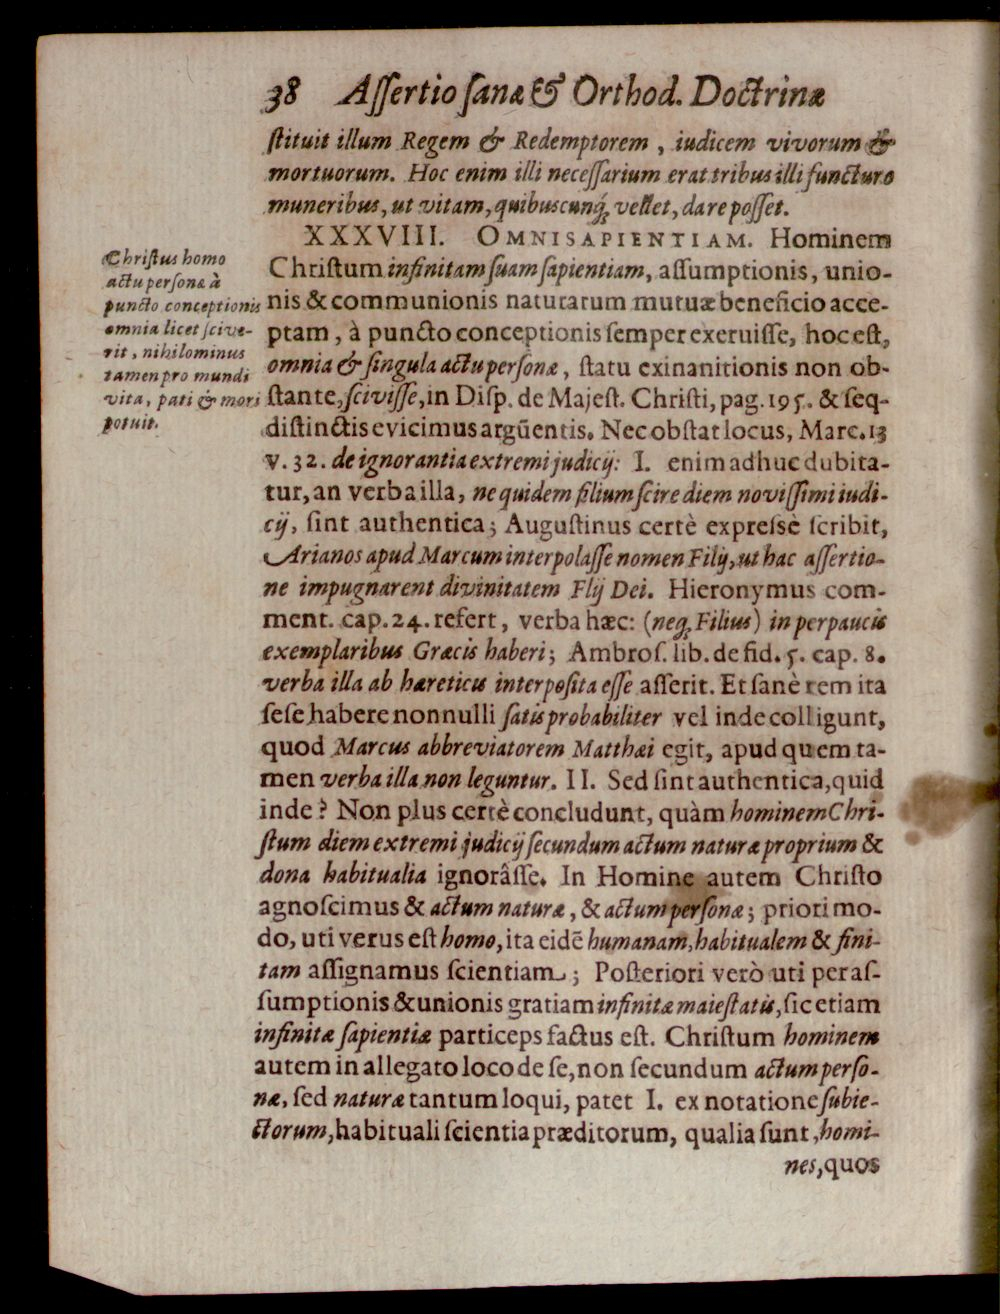 38 Aſſertio ſanæ & Orthod. Doctrinæ
ſtituit illum Regem & Redemptorem, iudicem vivorum &
mortuorum. Hoc enim illi neceſſarium erat tribus illi functuro
muneribus, ut vitam, quibuscunq́; vellet, dare poſſet.
XXXVIII. OMNISAPIENTIAM. Hominem
Chriſtum infinitam ſuam ſapientiam, aſſumptionis, unio-
nis & communionis naturarum mutuæ beneficio acce-
ptam, à puncto conceptionis ſemper exeruiſſe, hoc eſt,
omnia & ſingula actu perſonæ, ſtatu exinanitionis non ob-
ſtante, ſciviſſe, in Diſp. de Majeſt. Chriſti, pag. 195. & ſeq-
diſtinctis evicimus argūentis. Nec obſtat locus, Marc. 13
v. 32. de ignorantia extremi judicij: I. enim adhuc dubita-
tur, an verba illa, ne quidem filium ſcire diem noviſſimi iudi-
cij, ſint authentica; Auguſtinus certè expreſsè ſcribit,
Arianos apud Marcum interpolaſſe nomen Filij, ut hac aſſertio-
ne impugnarent divinitatem Flij Dei. Hieronymus com-
ment. cap. 24. refert, verba hæc: (neq́; Filius) in perpaucis
exemplaribus Græcis haberi; Ambroſ. lib. de fid. 5. cap. 8.
verba illa ab hæreticis interpoſita eſſe aſſerit. Et ſanè rem ita
ſeſe habere nonnulli ſatis probabiliter vel inde colligunt,
quod Marcus abbreviatorem Matthæi egit, apud quem ta-
men verba illa non leguntur. II. Sed ſint authentica, quid
inde? Non plus certè concludunt, quàm hominem Chri-
ſtum diem extremi judicij ſecundum actum naturæ proprium &
dona habitualia ignorâſſe. In Homine autem Chriſto
agnoſcimus & actum naturæ, & actum perſonæ; priori mo-
do, uti verus eſt homo, ita eidē humanam, habitualem & fini-
tam aſſignamus ſcientiam; Poſteriori verò uti per aſ-
ſumptionis & unionis gratiam infinitæ maieſtatis, ſic etiam
infinitæ ſapientiæ particeps factus eſt. Chriſtum hominem
autem in allegato loco de ſe, non ſecundum actum perſo-
næ, ſed naturæ tantum loqui, patet I. ex notatione ſubie-
ctorum, habituali ſcientia præditorum, qualia ſunt, homi-
nes, quos
Chriſtus homo
actu perſonæ à
puncto conceptionis
omnia licet ſcive-
rit, nihilominus
tamen pro mundi
vita, pati & mori
potuit.